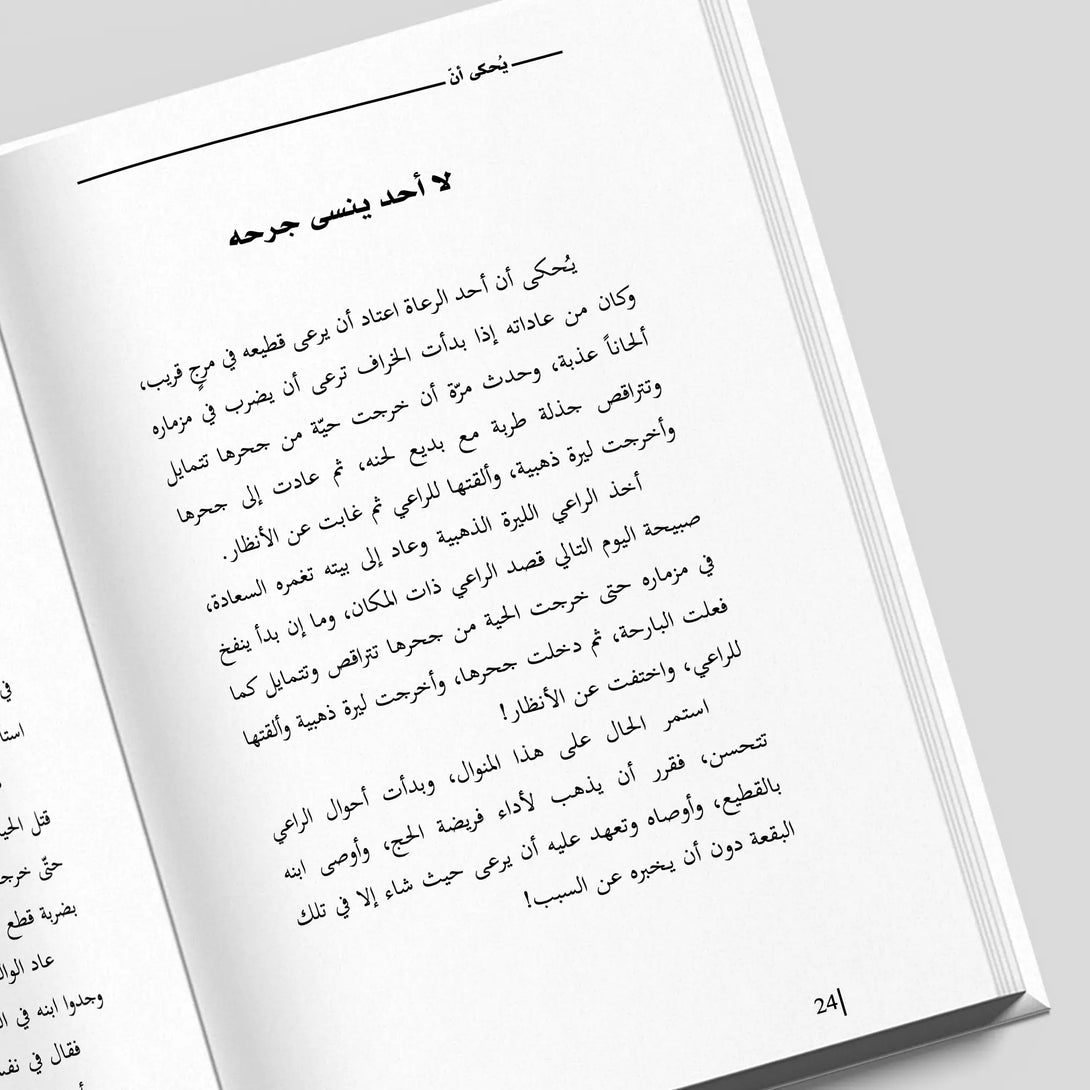 يُحكى أنّ
لا أحد ينسى جرحه
يُحكى أن أحد الرعاة اعتاد أن يرعى قطيعه في مرجٍ قريب،
وكان من عاداته إذا بدأت الخراف ترعى أن يضرب في مزماره
ألحاناً عذبة، وحدث مرّة أن خرجت حيّة من جحرها تتمايل
وتتراقص جذلة طربة مع بديع لحنه، ثم عادت إلى جحرها
وأخرجت ليرة ذهبية، وألقتها للراعي ثم غابت عن الأنظار.
أخذ الراعي الليرة الذهبية وعاد إلى بيته تغمره السعادة،
صبيحة اليوم التالي قصد الراعي ذات المكان، وما إن بدأ ينفخ
في مزماره حتى خرجت الحية من جحرها تتراقص وتتمايل كما
فعلت البارحة، ثم دخلت جحرها، وأخرجت ليرة ذهبية وألقتها
للراعي، واختفت عن الأنظار!
استمر الحال على هذا المنوال، وبدأت أحوال الراعي
تتحسن، فقرر أن يذهب لأداء فريضة الحج، وأوصى ابنه
بالقطيع، وأوصاه وتعهد عليه أن يرعى حيث شاء إلا في تلك
البقعة دون أن يخبره عن السبب!
24
في
قتل
حتّى
بضربة قطع
عاد
وجدوا ابنه في
فقال في